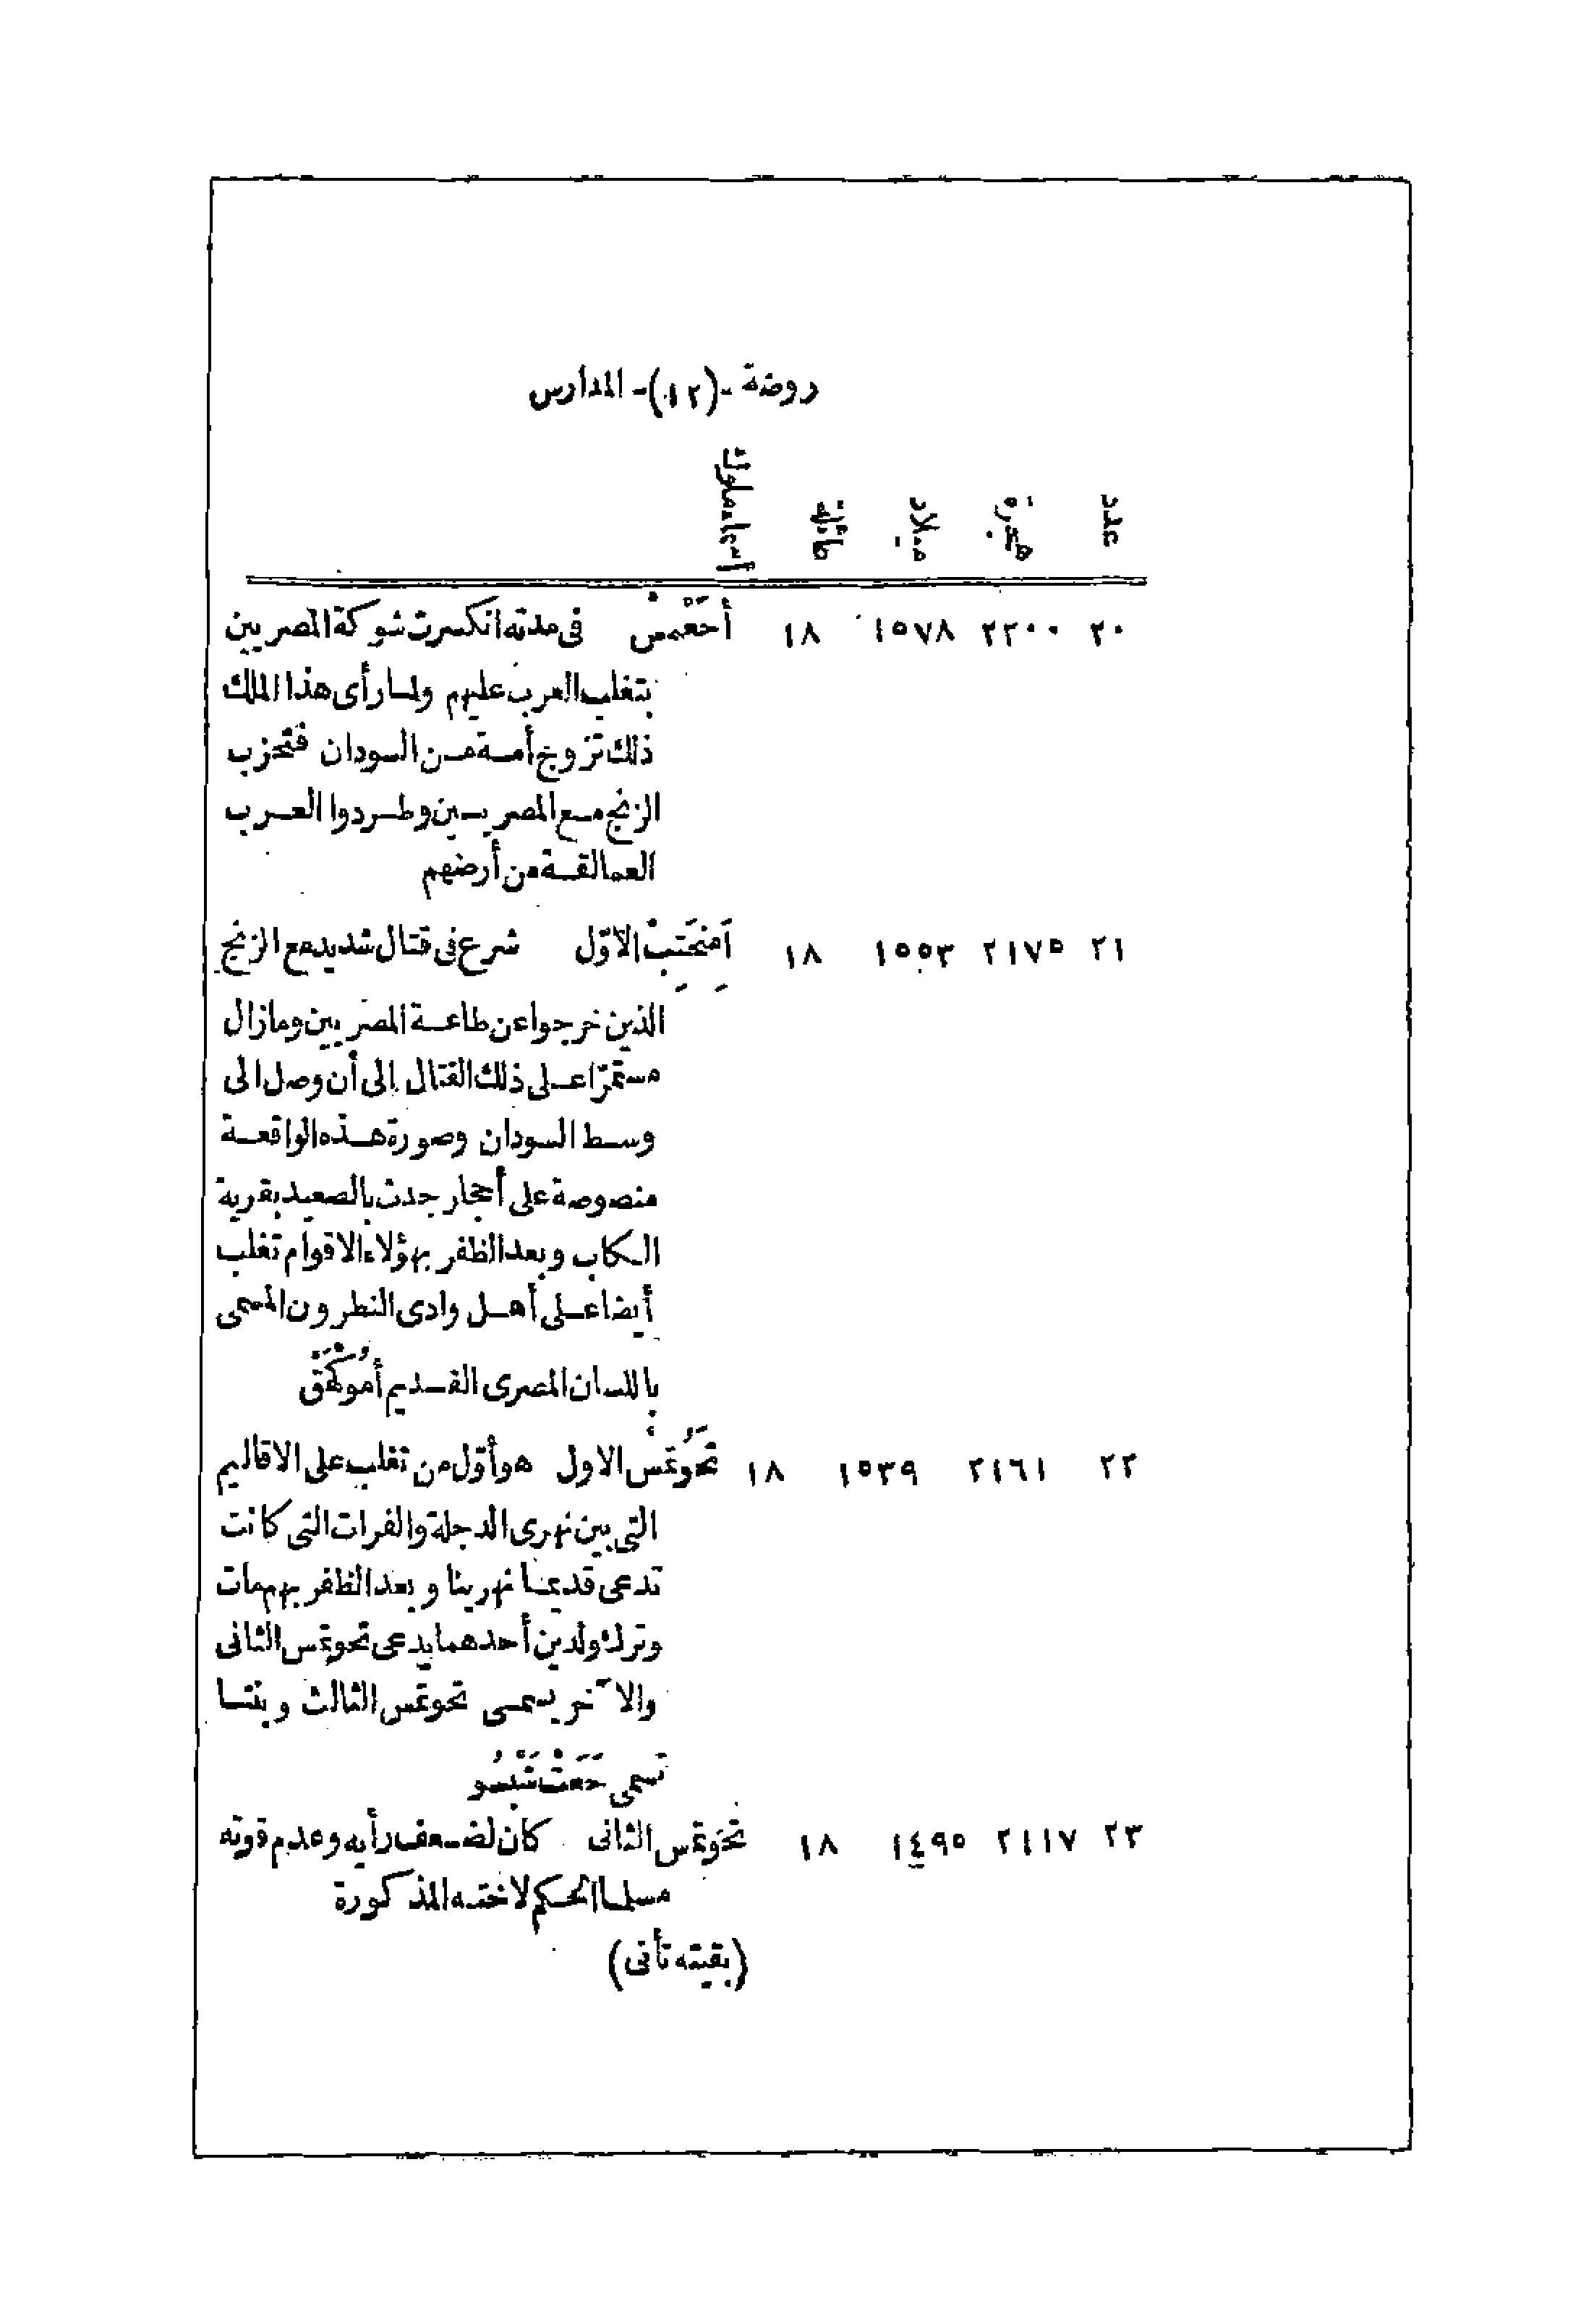 روضة -(١٢)- المدارس
عدد هجرة ميلاد عائلة أسماء ملوك
٢٠ ٢٢٠٠ ١٥٧٨ ١٨ أَحَعْمِسْ فى مدته انكسرت شوكة المصريين
بتغلب العرب عليهم ولما رأى هذا الملك
ذلك تزوج أمة من السودان فتحزب
الزنج مع المصريين وطردوا العرب
العمالقة من أرضهم
٢١ ٢١٧٥ ١٥٥٣ ١٨ أَمِنْحَتِبْ الاوّل شرع فى قتال شديد مع الزنج
الذين خرجوا عن طاعة المصريين وما زال
مستمرّا على ذلك القتال إلى أن وصل الى
وسط السودان وصورة هذه الواقعة
منصوصة على أحجار جدث بالصعيد بقرية
الكاب وبعد الظفر بهؤلاء الاقوام تغلب
أيضا على أهل وادى النطرون المسمى
باللسان المصرى القديم
٢٢ ٢١٦١ ١٥٣٩ ١٨ تَحُوتمْس الاول هو أوّل من تغلب على الاقاليم
التى بين نهرى الدجلة والفرات التى كانت
تدعى قديما نهرينا وبعد الظفر بهم مات
وترك ولدين أحدهما يدعى تحوتمس الثانى
والآخر يسمى تحوتمس الثالث وبنتا
تسمى حَعَتْ شَبْسُو
٢٣ ٢١١٧ ١٤٩٥ ١٨ تحَوتمس الثانى كان لضعف رأيه وعدم قوته
مسلما الحكم لاخته المذكورة
(بقيته تأتى)